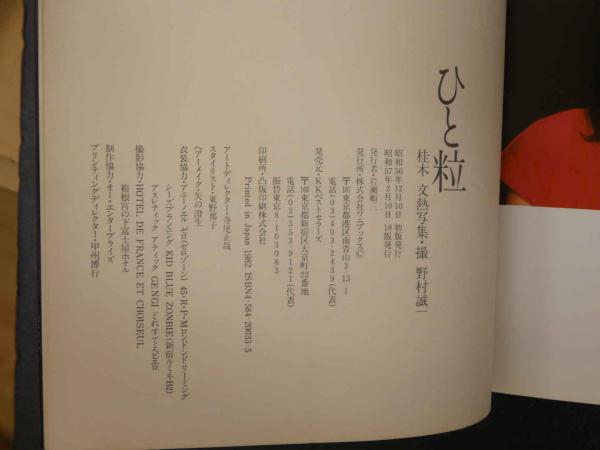 ひと粒
桂木 文熱写集・撮 野村誠一
昭和56年12月10日 初版発行
昭和57年2月10日 18版発行
発行者・岩瀬順三
発行所・株式会社ワニブックス©
〒107東京都港区南青山3-13-1
電話(03)403-2439(代表)
発売元・KKベストセラーズ
〒160東京都新宿区大京町22番地
電話(03)353-9121(代表)
振替東京8-103083
印刷所・凸版印刷株式会社
Printed in Japan 1982 ISBN4 584 20033-5
アートディレクター・寺尾正哉
スタイリスト・東野邦子
ヘアーメイク・矢の澄生
衣装協力・アニーノエル ゼロ(ゼロゾーン) 45・R・P・M ロンドンドリーミング
シーズプランニング KID BLUE ZONBIE(新宿ルミネB2)
アスレティック アティック GENGI
撮影協力・HOTEL DE FRANCE ET CHOISEUL
箱根宮の下富士屋ホテル
制作協力・オー・エンタープライズ
プリンティングディレクター・甲州博行